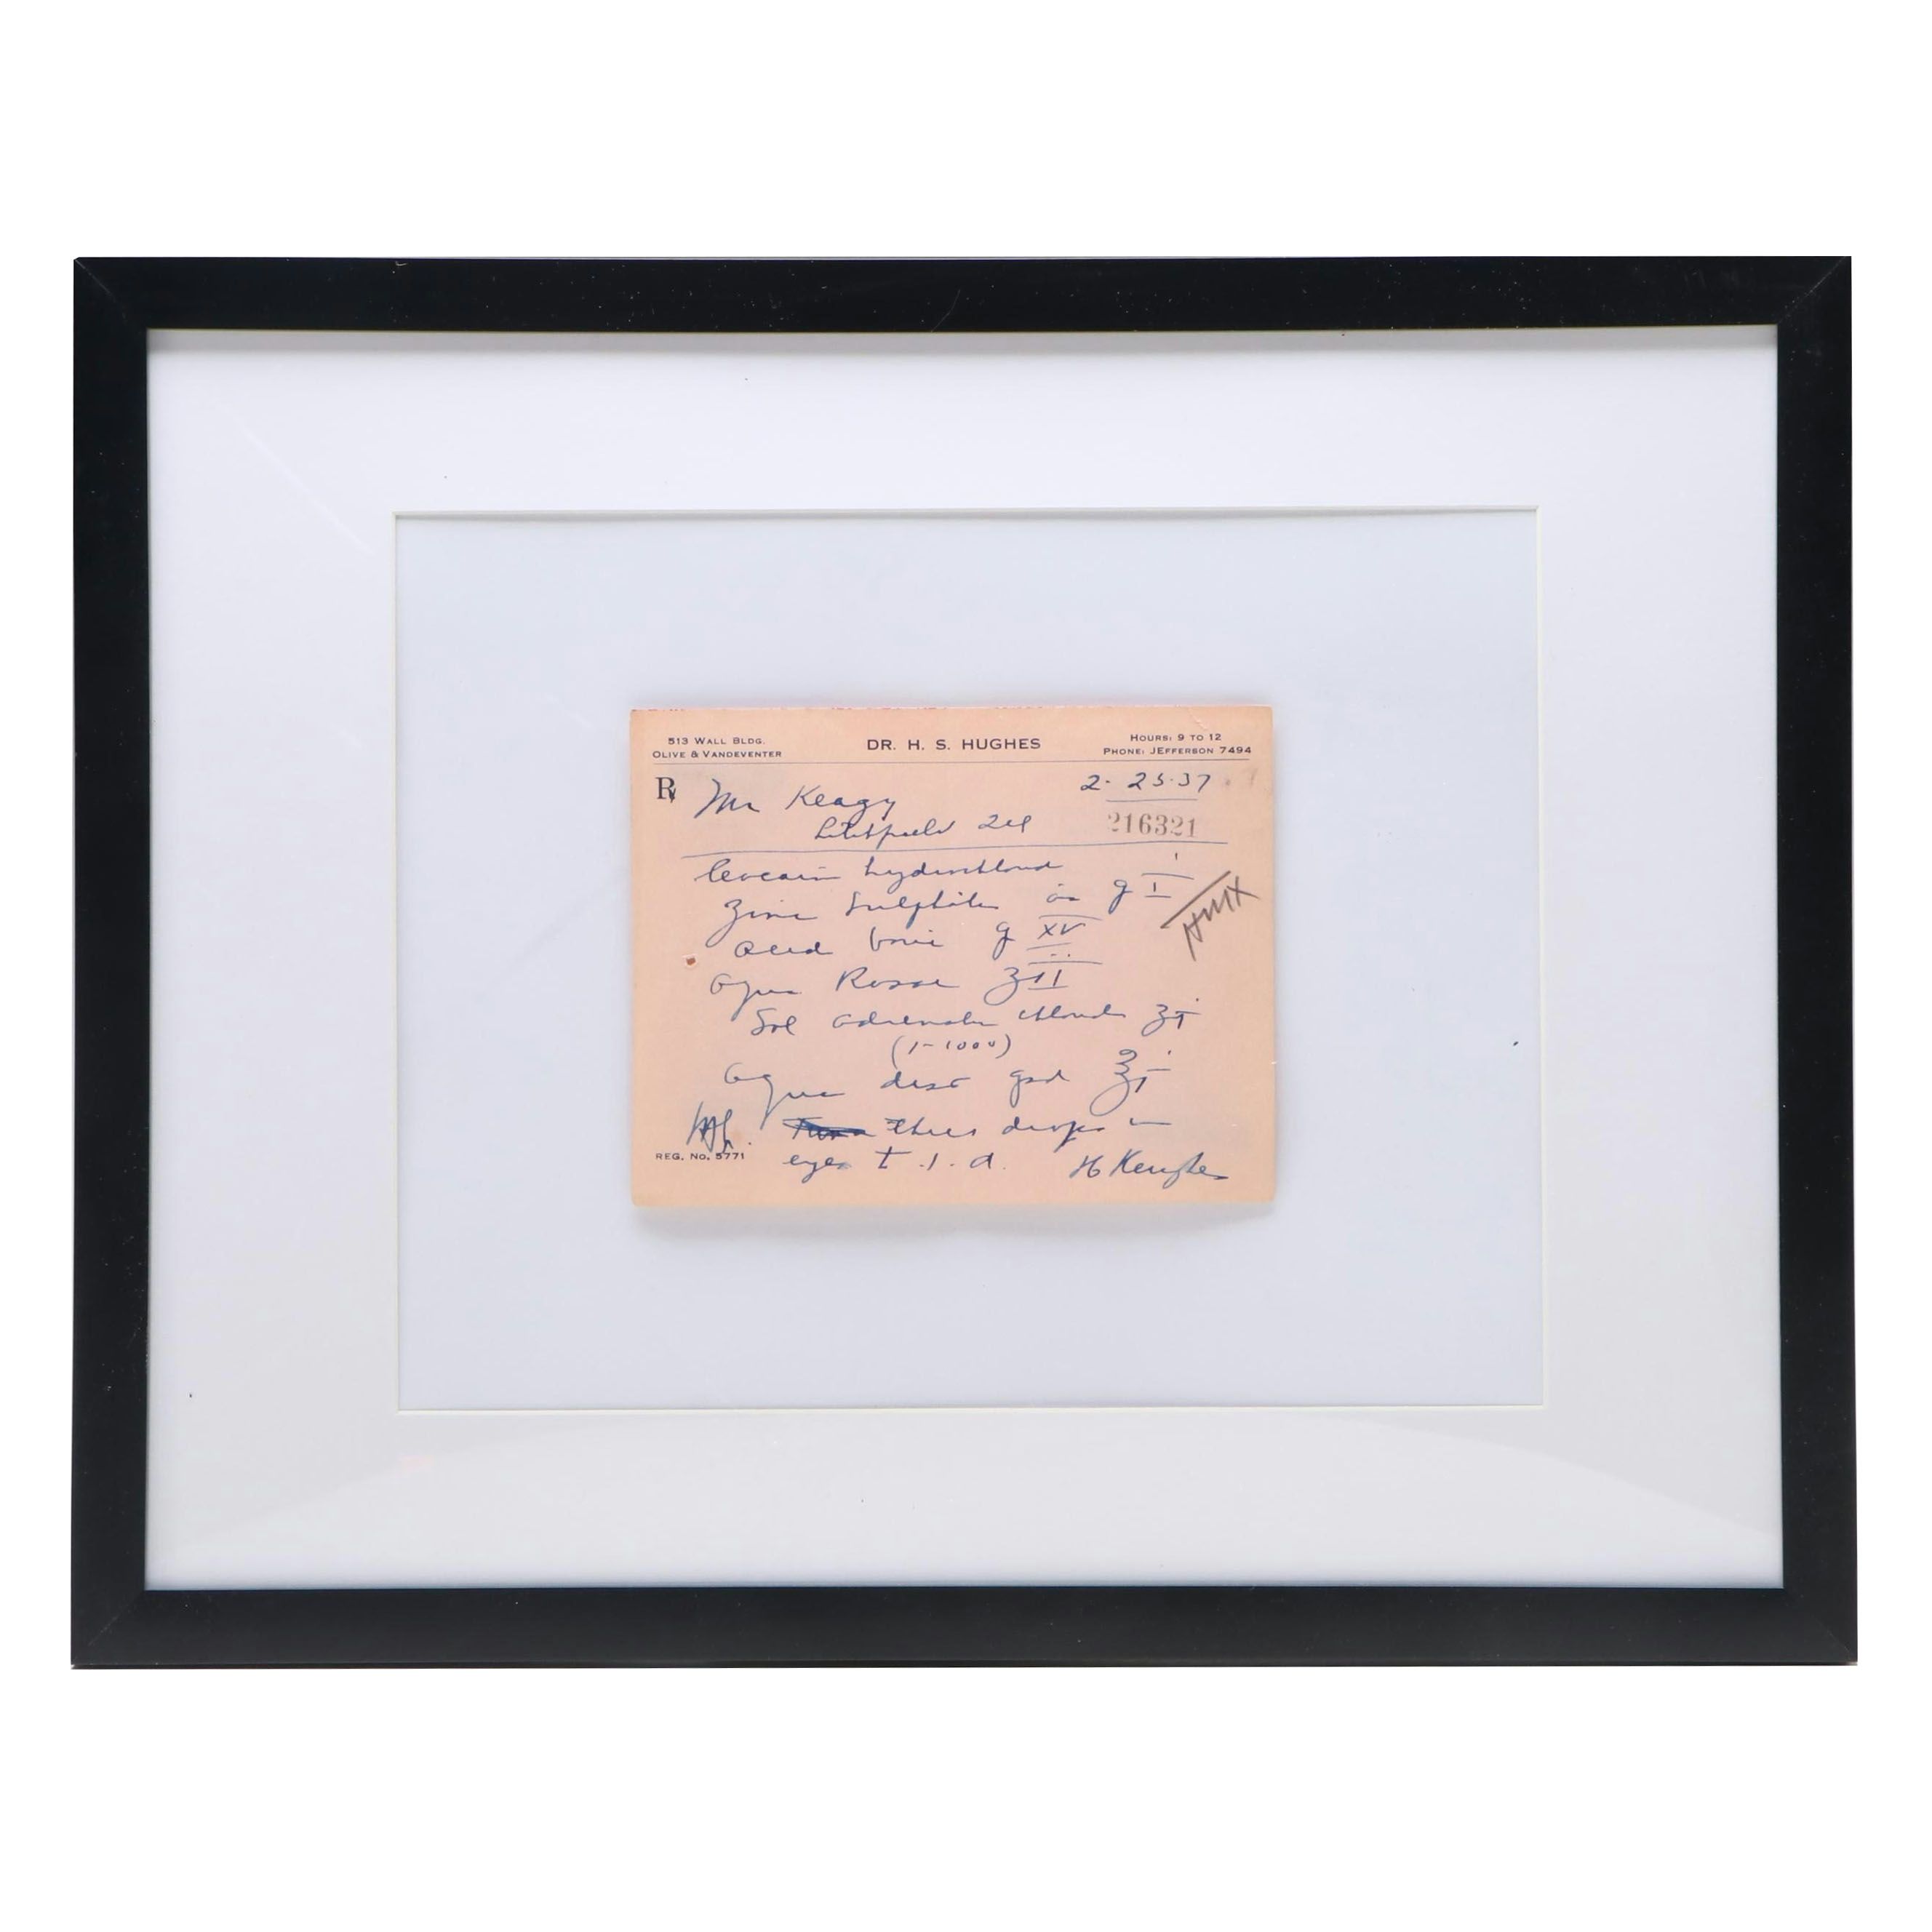 513 WALL BLDG.
OLIVE & VANDEVENTER
DR. H. S. HUGHES
HOURS: 9 TO 12
PHONE: JEFFERSON 7494
Rx Mr Keagy
2-25-37
Litchfield Ill
216321
Cocain hydrochlorid
Zinc Sulphate aa g I
acid boric g XV
aqua Rosae ʒII
Sol adrenalin chloride ʒj
(1-1000)
aqua dest qsd ℥j
three drops in
eyes t.i.d.
REG. NO. 5771